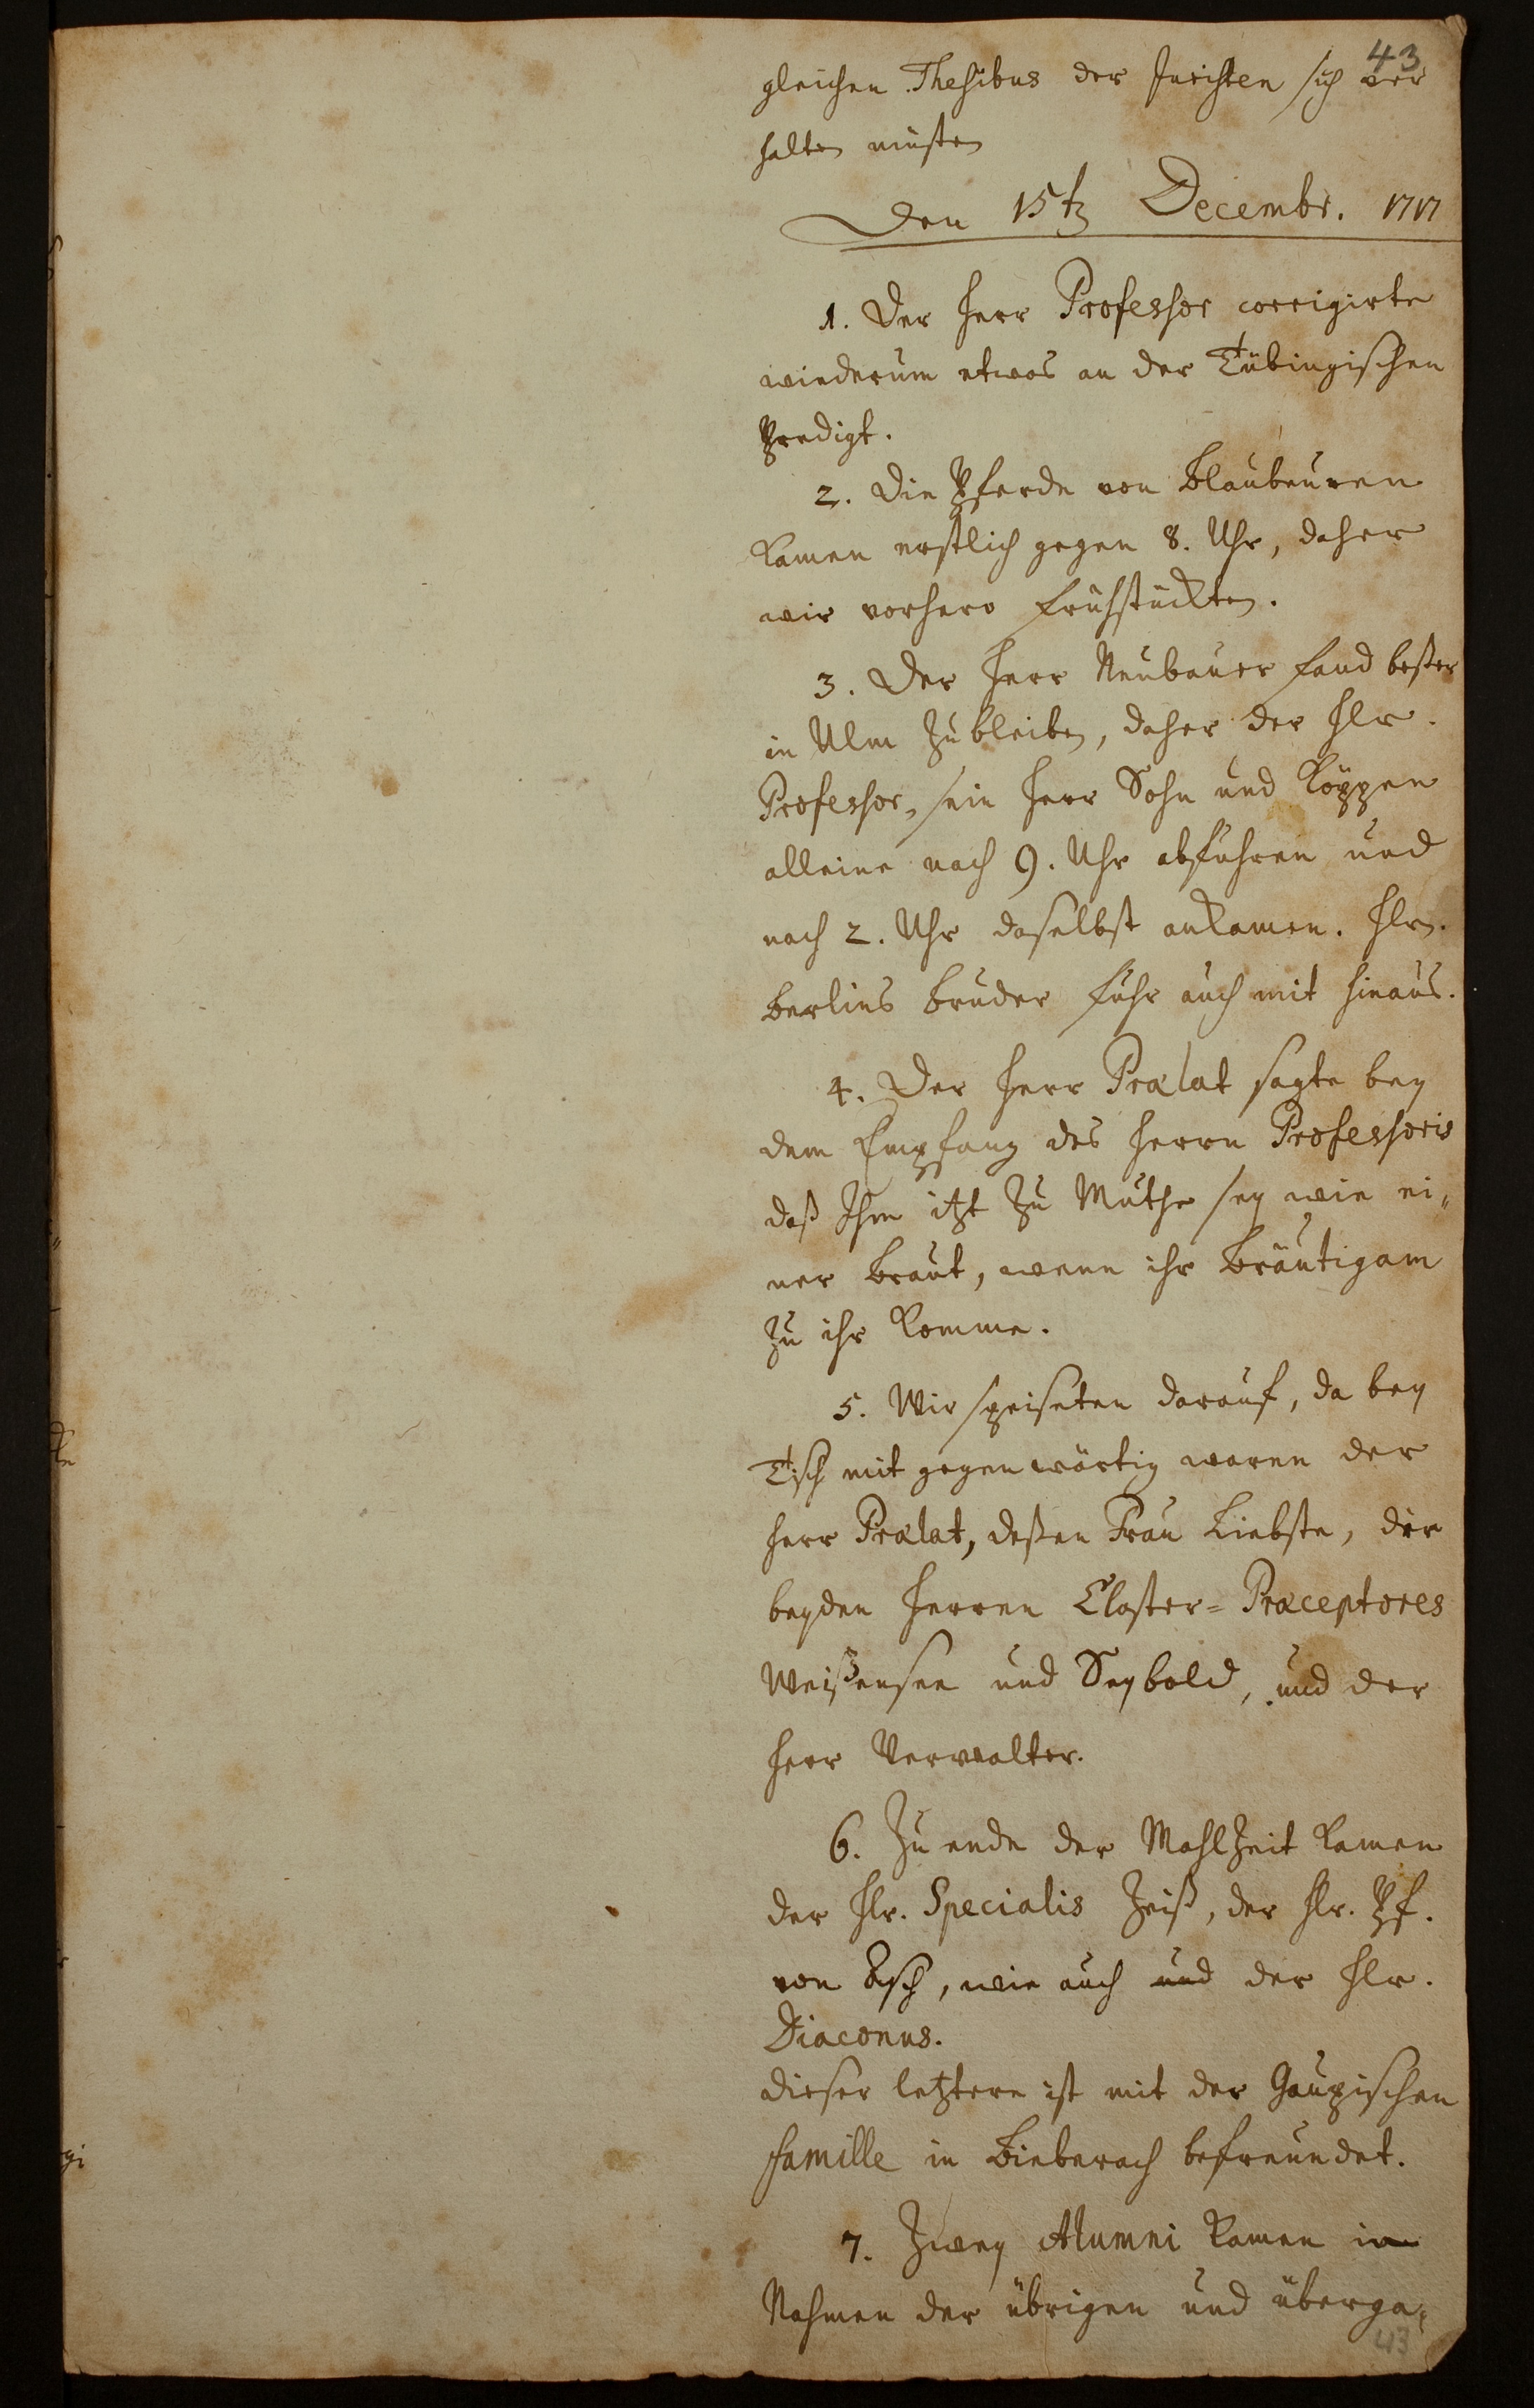 43
gleichen Thesibus der Juristen sich ver
halten müsten
Den 15t. Decembr. 1717
1. Der Herr Professor corrigirte
wiederum etwas an der Tübingischen
Predigt.
2. Die Pferde von Blaubeuren
kamen erstlich gegen 8. Uhr, daher
wir vorhero frühstückten.
3. Der Herr Neubauer fand beßer
in Ulm zu bleiben, daher der Hr.
Professor, sein Herr Sohn und Köppen
alleine nach 9. Uhr abfuhren und
nach 2. Uhr daselbst ankamen. Hrn.
Berlins Bruder fuhr auch mit hinaus.
4. Der Herr Prælat sagte bey
dem Empfang des Herrn Professoris
daß Ihm itzt zu Muthe sey wie ei„
ner Braut, wenn ihr Bräutigam
zu ihr komme.
5. Wir speiseten darauf, da bey
Tisch mit gegenwärtig waren der
Herr Prælat, deßen Frau Liebste, die
beyden Herren Closter= Præceptores
Weißensee und Seybold, und der
Herr Verwalter.
6. Zu ende der Mahlzeit kamen
der Hr. Specialis Zeiß, der Hr. Pf.
von Asch, wie auch und der Hr.
Diaconus.
dieser letztere ist mit der Gaupischen
famille in Bieberach befreundet.
7. Zwey Alumni kamen im
Nahmen der übrigen und überga„
43